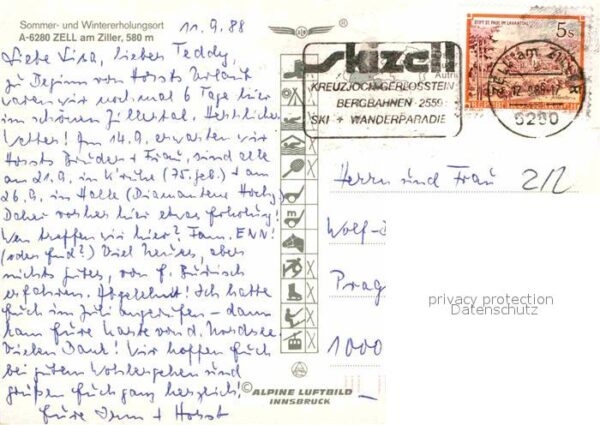 Sommer- und Wintererholungsort
A-6280 ZELL am Ziller, 580 m
11.9.88
Liebe Lisa, lieber Teddy,
zu Beginn von Horsts Urlaub
waren wir nochmal 6 Tage hier
im schönen Zillertal. Herrliches
Wetter! Am 14.9. erwarten wir
Horsts Bruder + Frau, sind alle
am 21.9. in (75. Geb.) + am
26.9. in Halle (Diamantene Hochz.)
Daher vorher hier etwas Erholung!
Wen treffen wir hier? Fam. ENN!
(oder End?) Viel Neues, aber
nichts Gutes, von F.
erfahren. Ich hatte
Euch im Juli angerufen - dann
kam Eure Karte von d. Nordsee.
Vielen Dank! Wir hoffen Euch
bei gutem Wohlergehen und
grüßen Euch ganz herzlich!
Eure + Horst
skizell
KREUZJOCH-GERLOSSTEIN
BERGBAHNEN 2559
SKI + WANDERPARADIE
5s
STIFT ST. PAUL IM LAVANTTAL
ZELL am ZILLER
6280
Herrn und Frau
212
Wolf-
Prag
1000
privacy protection
Datenschutz
© ALPINE LUFTBILD
INNSBRUCK